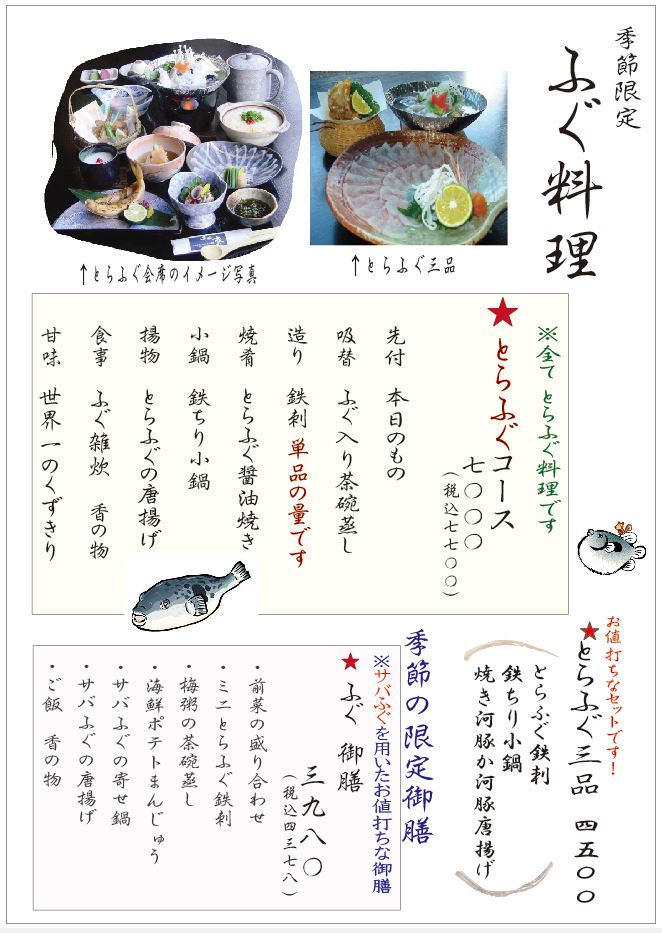 季節限定
ふぐ料理
↑とらふぐ三品
↑とらふぐ会席のイメージ写真
※全て とらふぐ料理です
★とらふぐコース
七〇〇〇
(税込七七〇〇)
先付 本日のもの
吸替 ふぐ入り茶碗蒸し
造り 鉄刺 単品の量です
焼肴 とらふぐ醤油焼き
小鍋 鉄ちり小鍋
揚物 とらふぐの唐揚げ
食事 ふぐ雑炊 香の物
甘味 世界一のくずきり
お値打ちなセットです!
★とらふぐ三品 四五〇〇
とらふぐ鉄刺
鉄ちり小鍋
焼き河豚か河豚唐揚げ
季節の限定御膳
※サバふぐを用いたお値打ちな御膳
★ふぐ 御膳
三九八〇
(税込四三七八)
・前菜の盛り合わせ
・ミニとらふぐ鉄刺
・梅粥の茶碗蒸し
・海鮮ポテトまんじゅう
・サバふぐの寄せ鍋
・サバふぐの唐揚げ
・ご飯 香の物